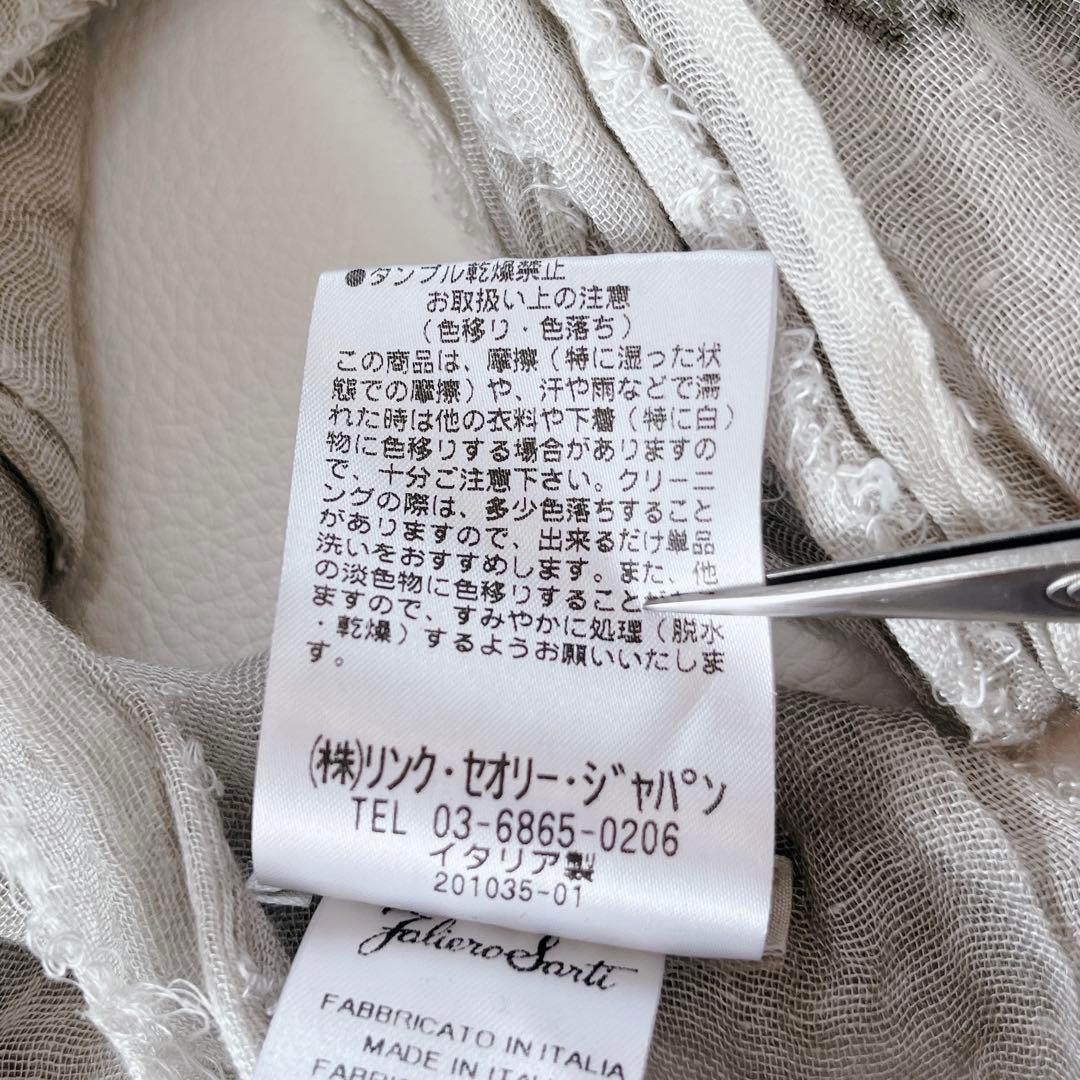 ●タンブル乾燥禁止
お取扱い上の注意
（色移り・色落ち）
この商品は、摩擦（特に湿った状
態での摩擦）や、汗や雨などで濡
れた時は他の衣料や下着（特に白）
物に色移りする場合がありますの
で、十分ご注意下さい。クリーニ
ングの際は、多少色落ちすること
がありますので、出来るだけ単品
洗いをおすすめします。また、他
の淡色物に色移りすること
ますので、すみやかに処理（脱水
・乾燥）するようお願いいたしま
す。
㈱リンク・セオリー・ジャパン
TEL 03-6865-0206
イタリア製
201035-01
Faliero Sarti
FABBRICATO IN ITALIA
MADE IN